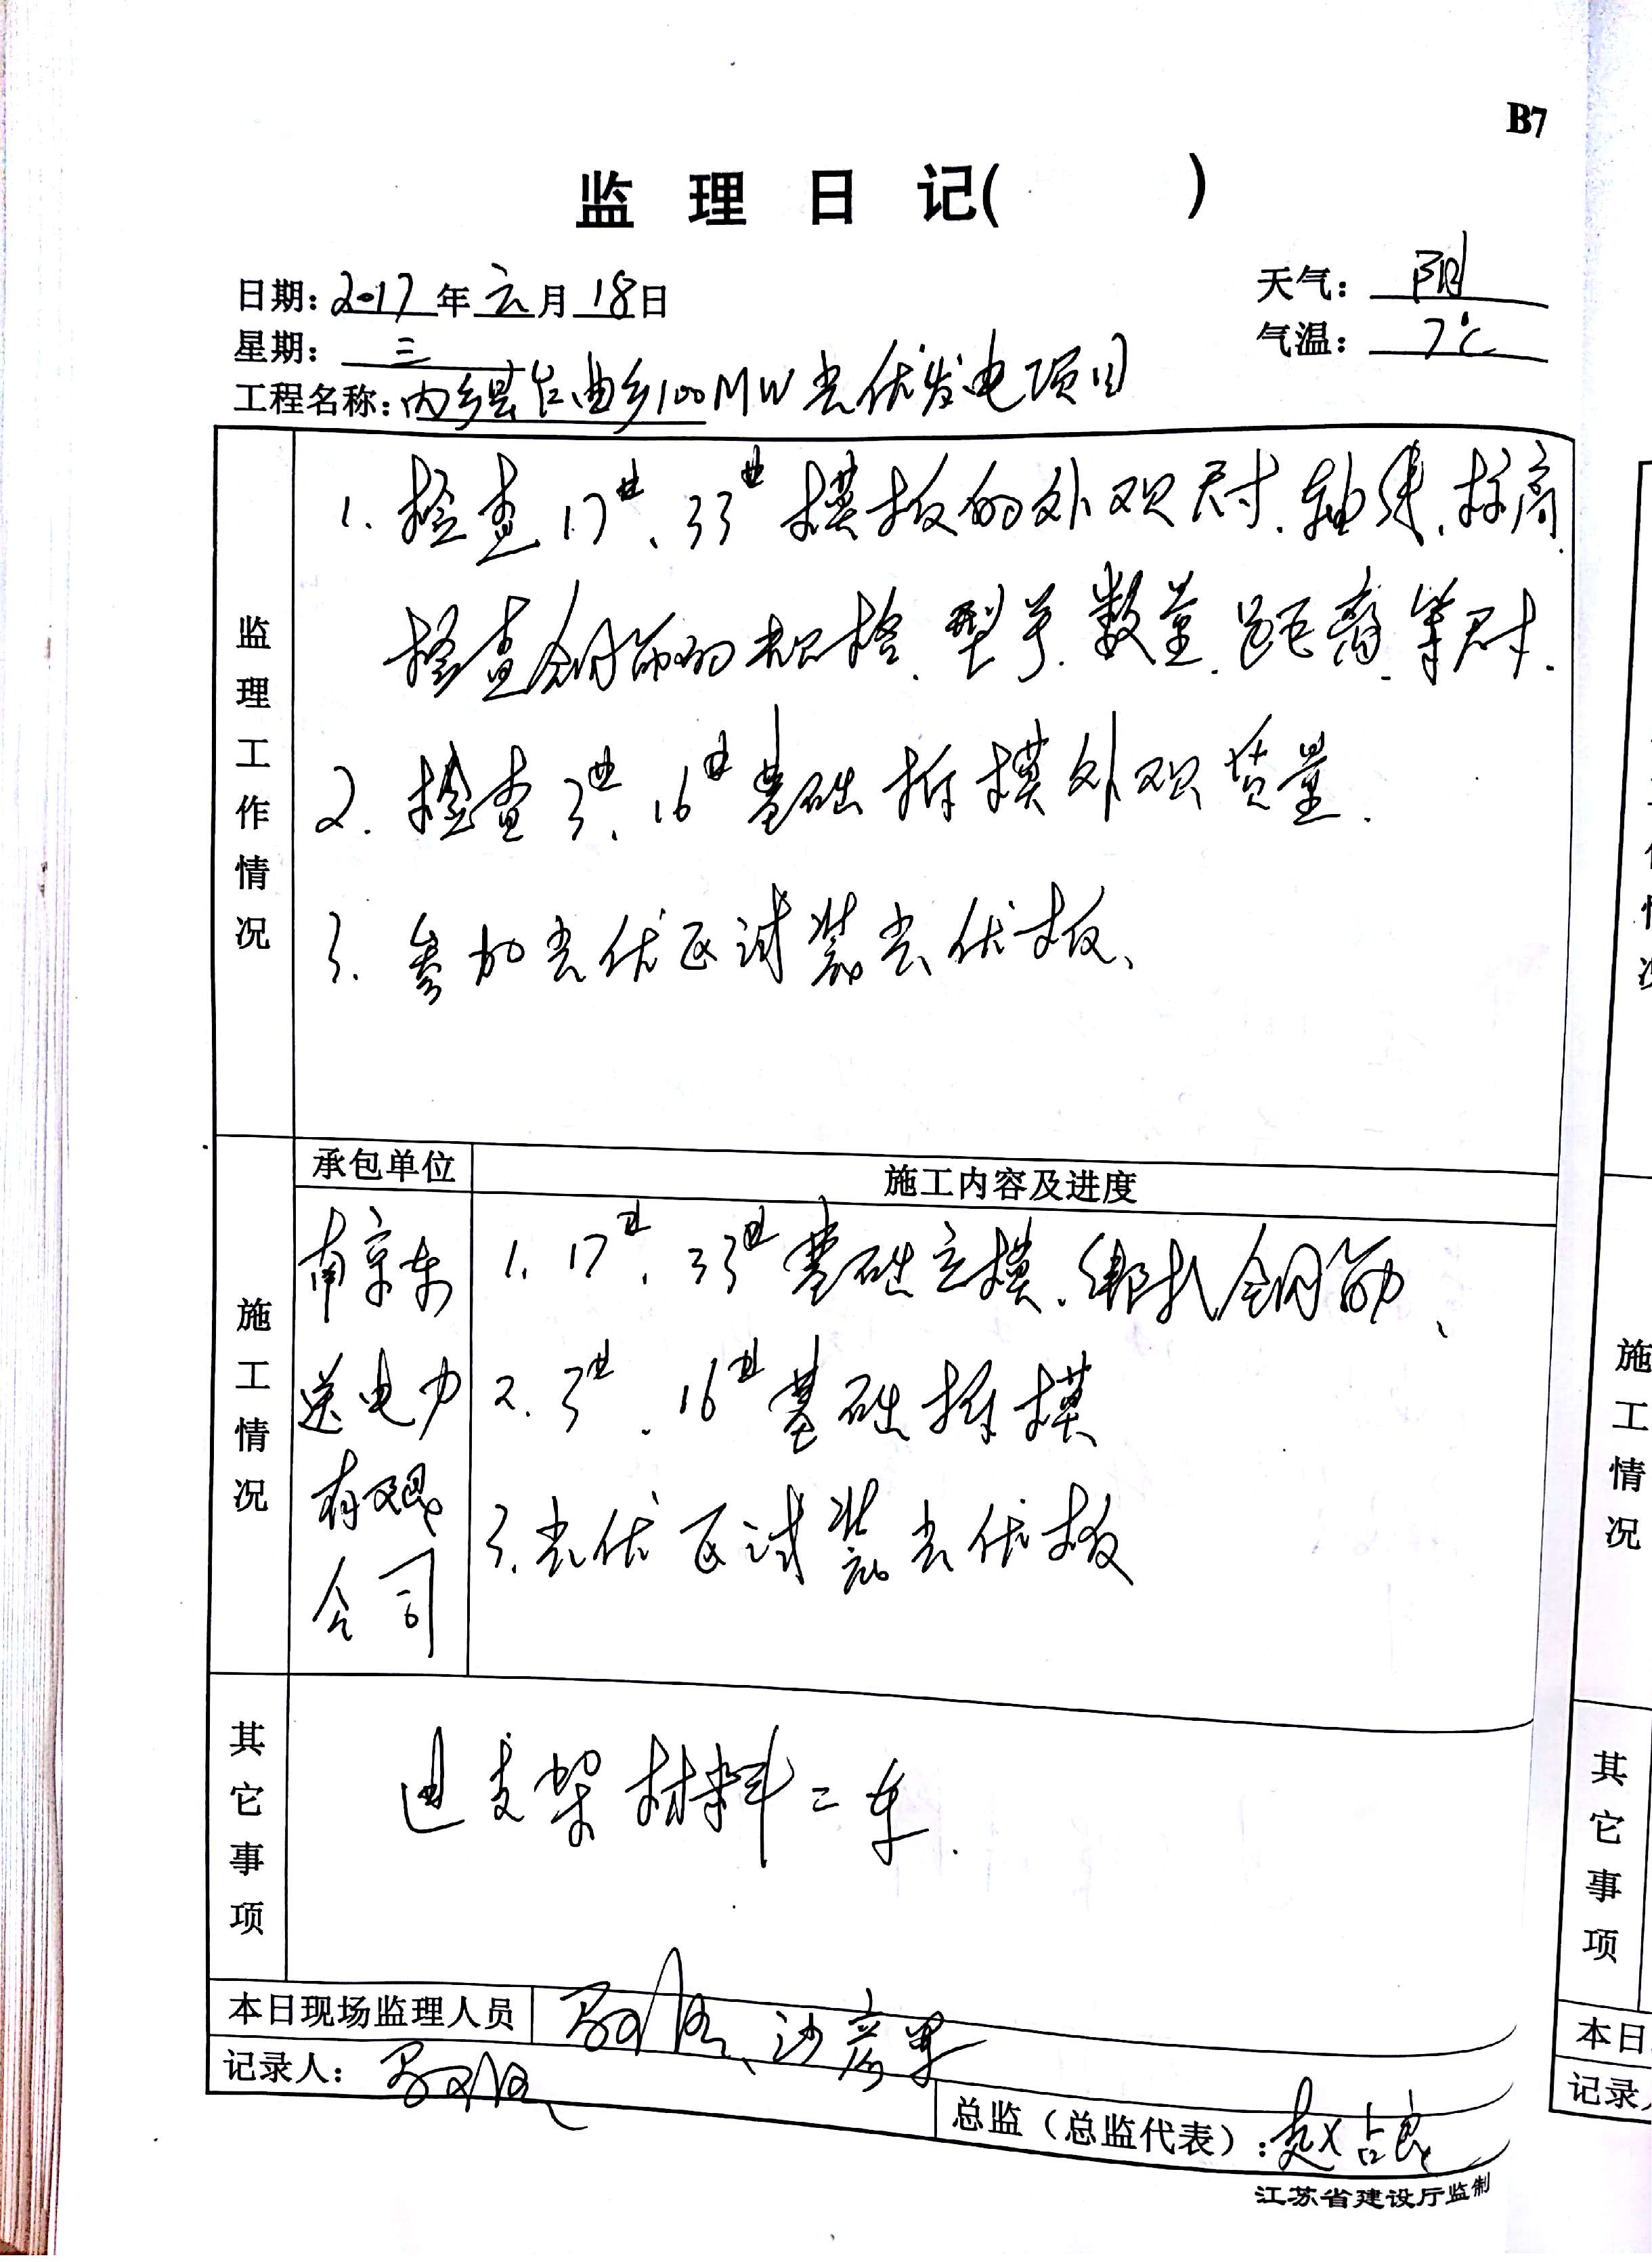 B7
监理日记( )
日期：2017年元月18日
天气：阴
星期：三
气温：7℃
工程名称：内乡县乍曲乡100MW光伏发电项目
监理工作情况
1. 检查17#、33#模板的外观尺寸、轴线、标高、
检查钢筋的规格、型号、数量、距离等尺寸.
2. 检查3#、16#基础拆模外观质量.
3. 参加光伏区试装光伏板、
施工情况
承包单位
施工内容及进度
南京东
送电力
有限
公司
1. 17#、33#基础立模、绑扎钢筋、
2. 3#、16#基础拆模
3. 光伏区试装光伏板
其它事项
进支架材料二车.
本日现场监理人员
记录人：
总监（总监代表）：赵占良
江苏省建设厅监制
施工情况
其它事项
本日
记录